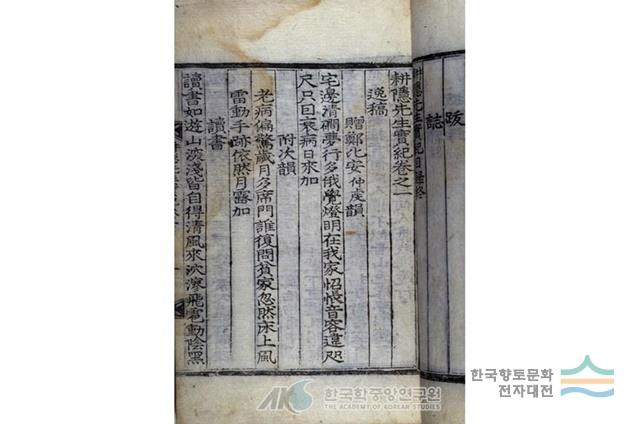 跋
誌
耕隱先生實紀目錄終
耕隱先生實紀卷之一
逸稿
贈鄭化安仲虔韻
宅邊清磵夢行多俄覺燈明在我家怊悵音容違咫
尺只回衰病日來加
附次韻
老病偏驚歲月多席門誰復問貧家忽然床上風
雷動手跡依然月露加
讀書
讀書如遊山深淺皆自得清風來沃寥飛雹動陰黑
AKS 한국학중앙연구원
THE ACADEMY OF KOREAN STUDIES
한국향토문화
전자대전